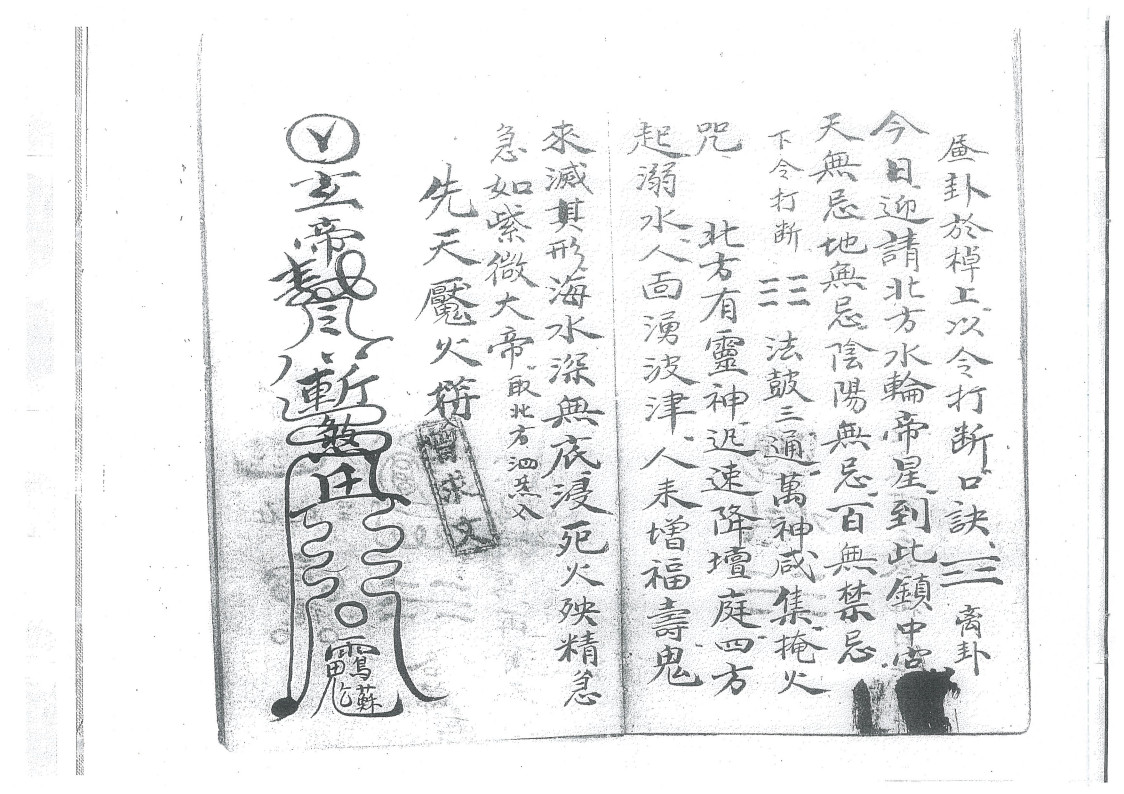 卦於棹上以令打断口訣 ☲ 离卦
今日迎請北方水輪帝星到此鎮中宮
天無忌地無忌陰陽無忌百無禁忌
下令打断 ☷ 法鼓三通萬神咸集掩火
咒 北方有靈神迟速降壇庭四方
起溺水人面湧波津人来增福壽鬼
來滅其形海水深無底浸死火殃精急
急如紫微大帝取北方泗炁入
先天魘火
曾求文
玄帝
斬煞